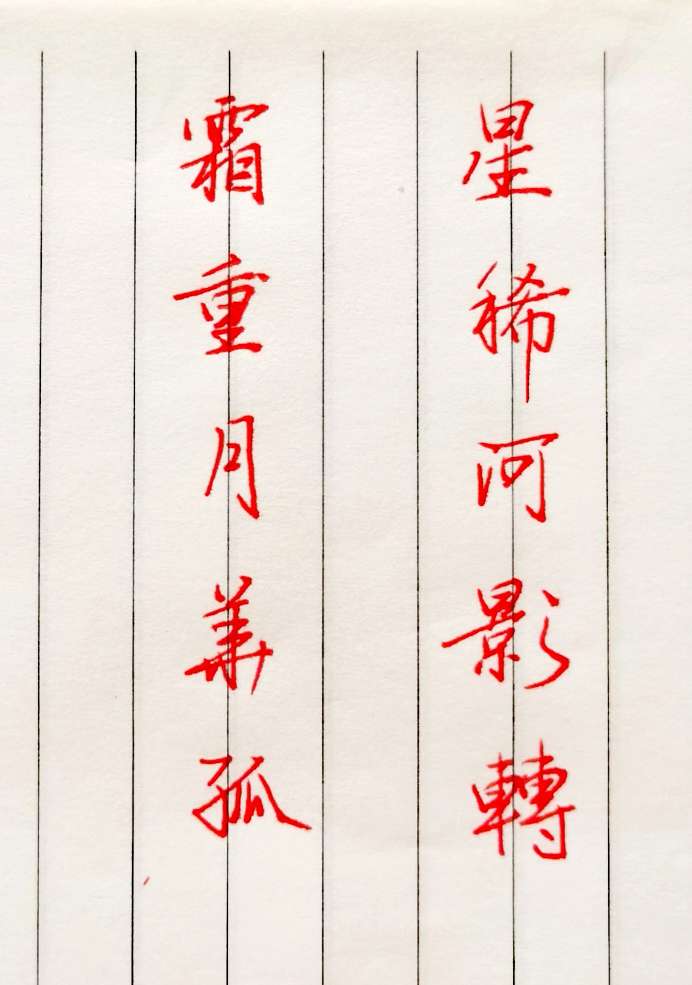 星稀河影轉
霜重月華孤